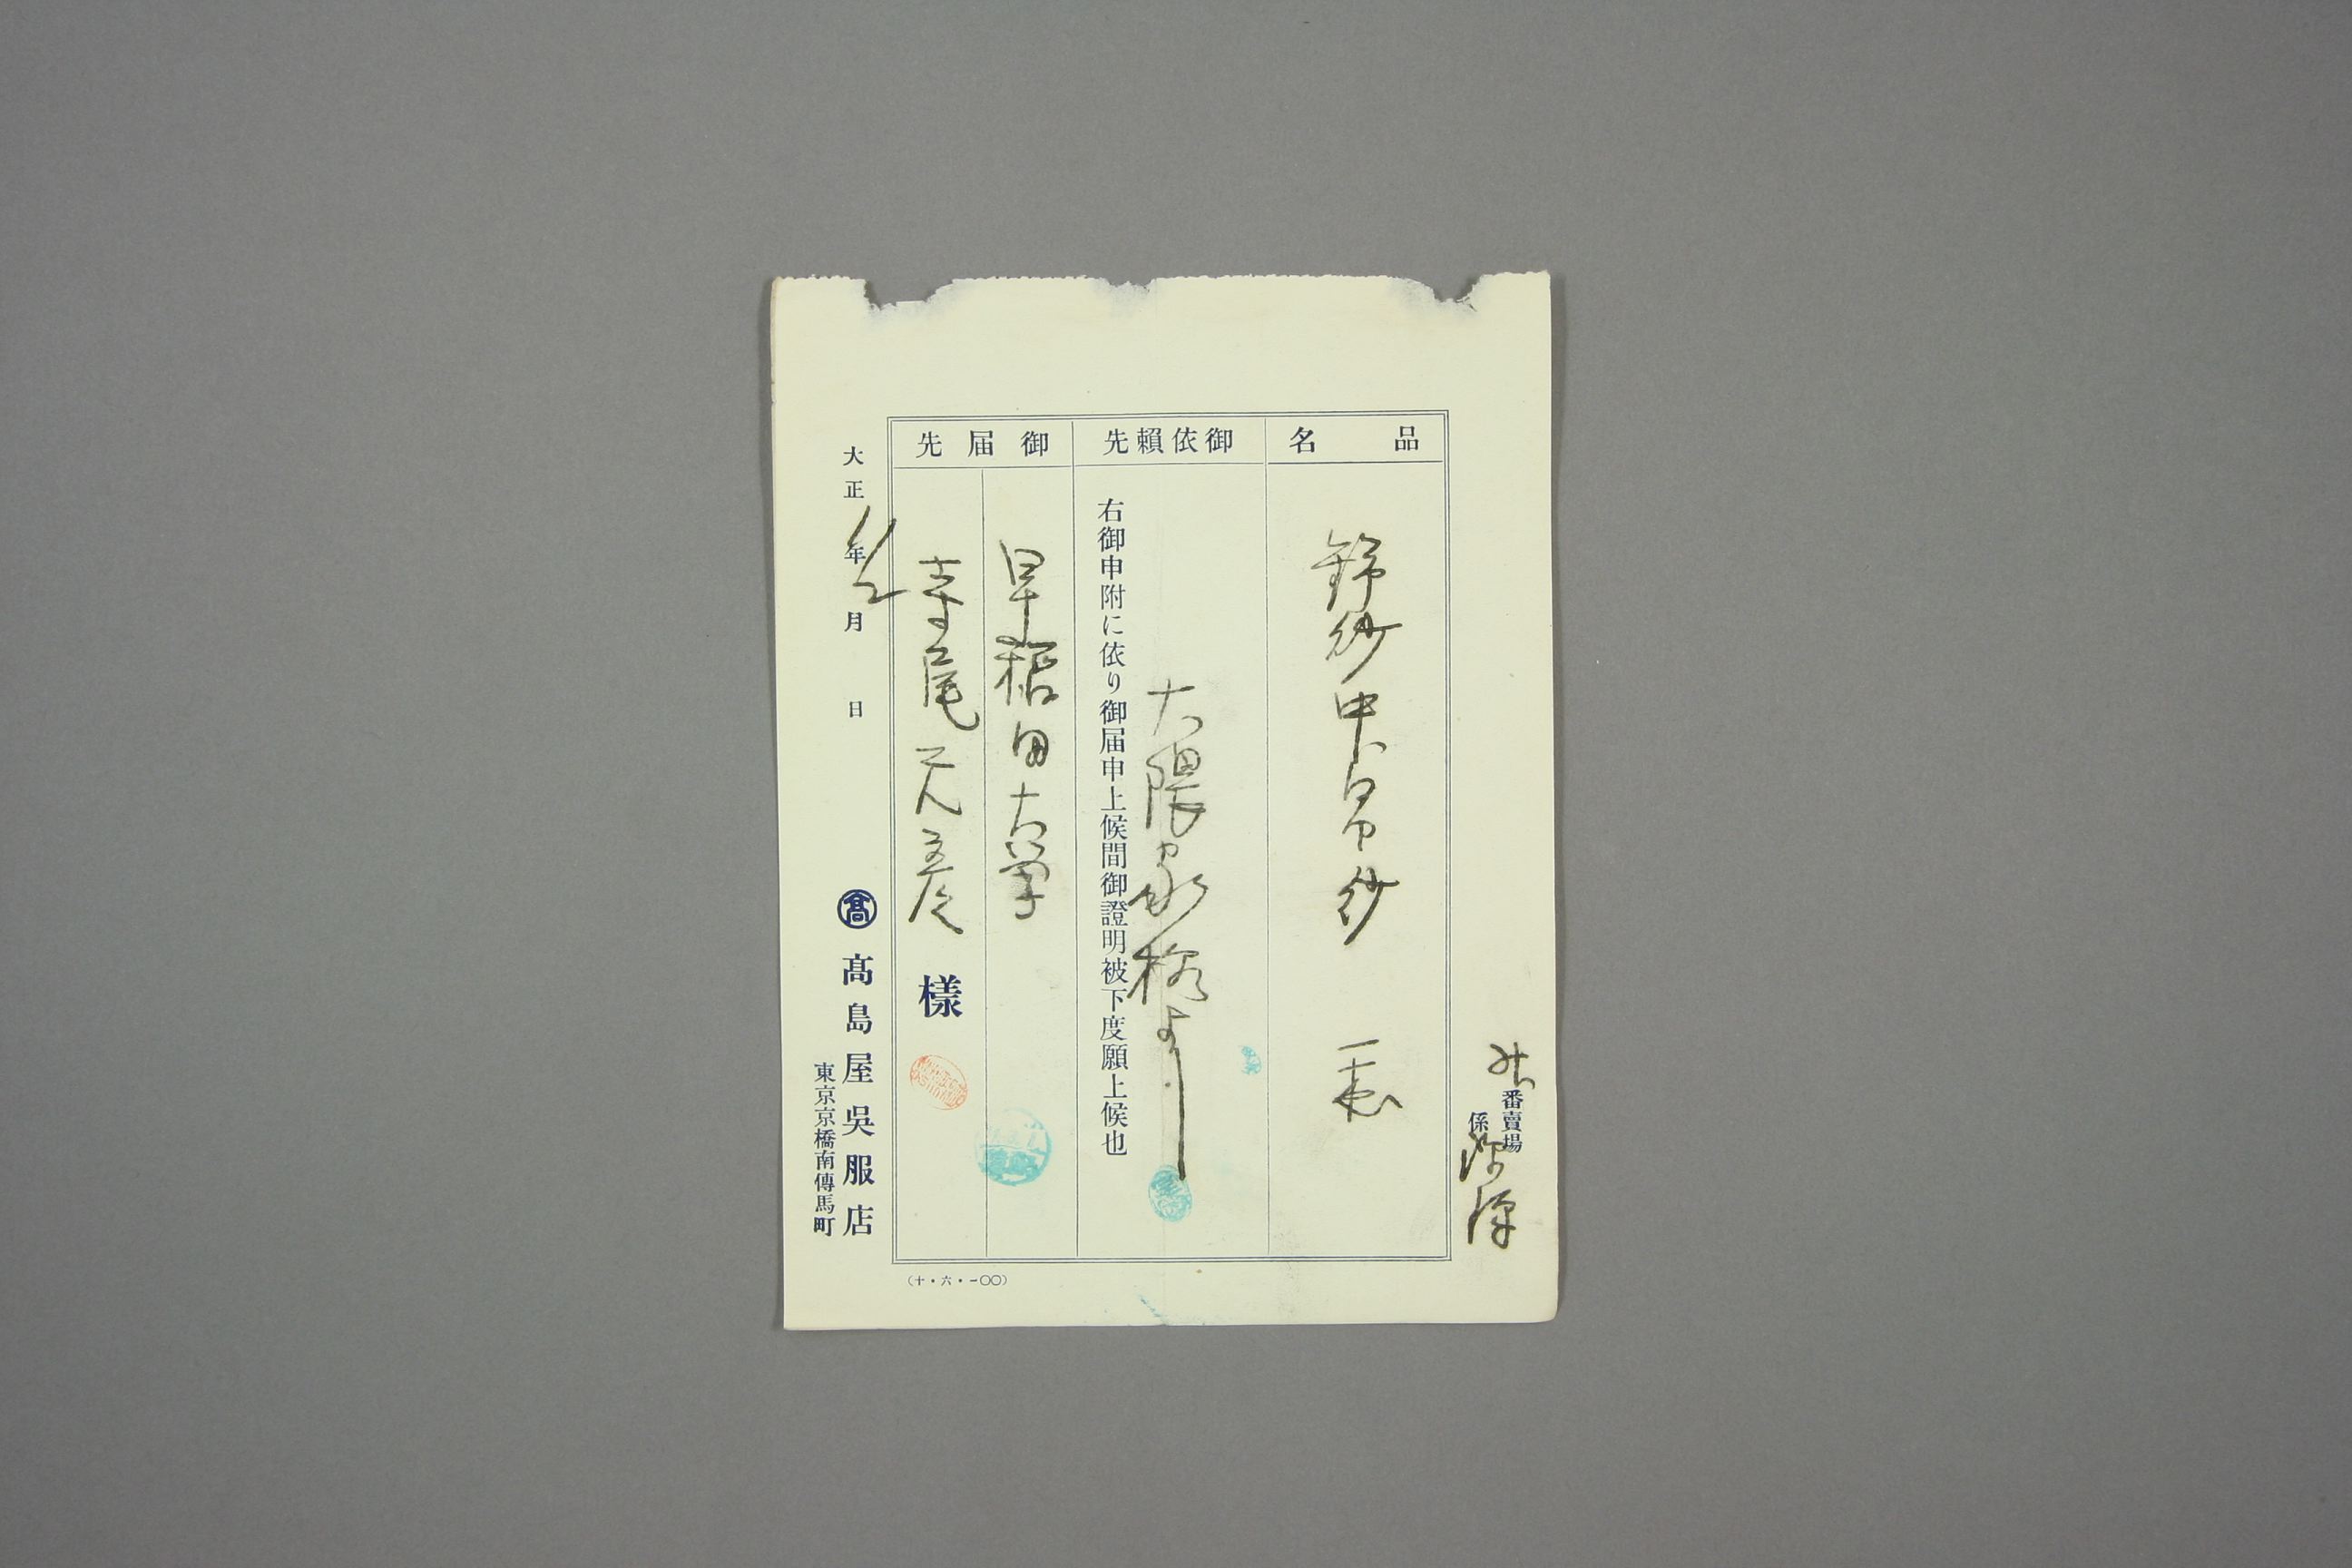 番賣場
係
品名
錦紗中帛紗 一表
御依賴先
大隈家様より
右御申附に依り御届申上候間御證明被下度願上候也
御届先
早稲田大学
寺尾元彦
樣
大正11年2月 日
髙 髙島屋吳服店
東京京橋南傳馬町
(十・六・一〇〇)